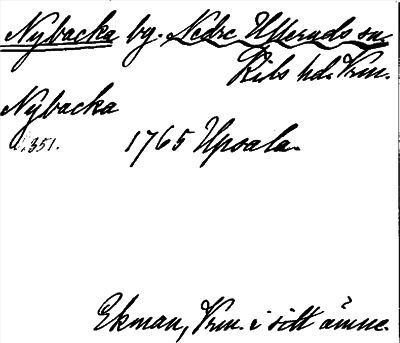 Nybacka bg. Nedre Ulleruds sn.
Kils hd. Vrm.
Nybacka
351.
1765 Upsala.
Ekman, Vrm. i sitt ämne.